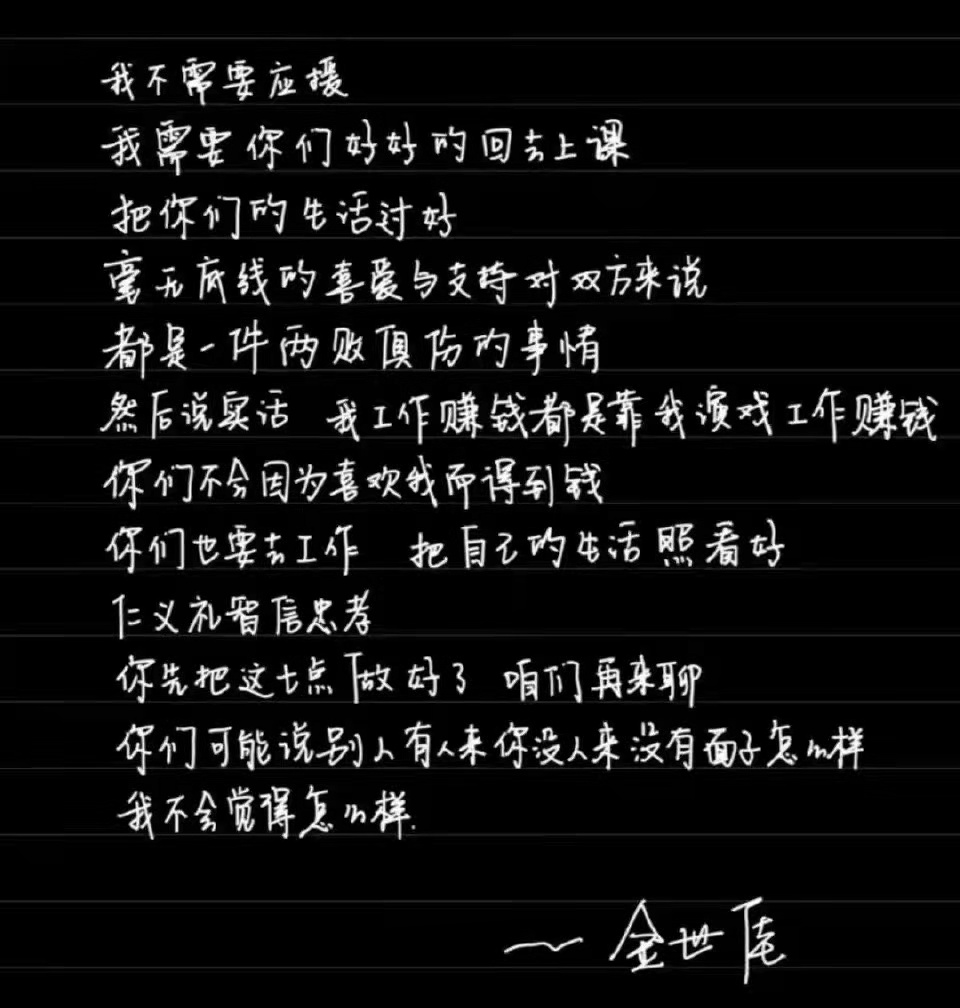 我不需要应援
我需要你们好好的回去上课
把你们的生活过好
毫无底线的喜爱与支持对双方来说
都是一件两败俱伤的事情
然后说实话 我工作赚钱都是靠我演戏工作赚钱
你们不会因为喜欢我而得到钱
你们也要去工作 把自己的生活照看好
仁义礼智信忠孝
你先把这七点做好了 咱们再来聊
你们可能说别人有人来你没人来没有面子怎么样
我不会觉得怎么样.
~金世佳